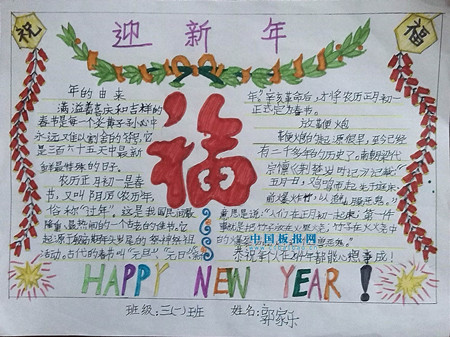 祝
迎新年
福
年的由来
满溢着喜庆和吉祥的
春节是每一个炎黄子孙心中
永远难以割舍的符,它
是三百六十五天中最新
鲜最特殊的日子。
农历正月初一是春
节,又叫阴历(农历)年,
俗称“过年”。这是我国民间最
隆重、最热闹的一个古老传统节。它
起源于殷商期年头岁尾的祭神祭祖
活动。古代的春节叫“元旦”“元日”“新
福
年”。辛亥革命后,才将农历正月初一
正式定为春节。
放鞭炮
鞭炮的起源很早,至今已经
有二千多年的历史了。南朝梁代
宗懔《荆楚岁时记》记载:
意思是说:“人们在正月初一起床,第一件
中国板报网
恭祝每个人在新年都能心想事成!
HAPPY NEW YEAR!
班级:三(一)班 姓名:郭家乐